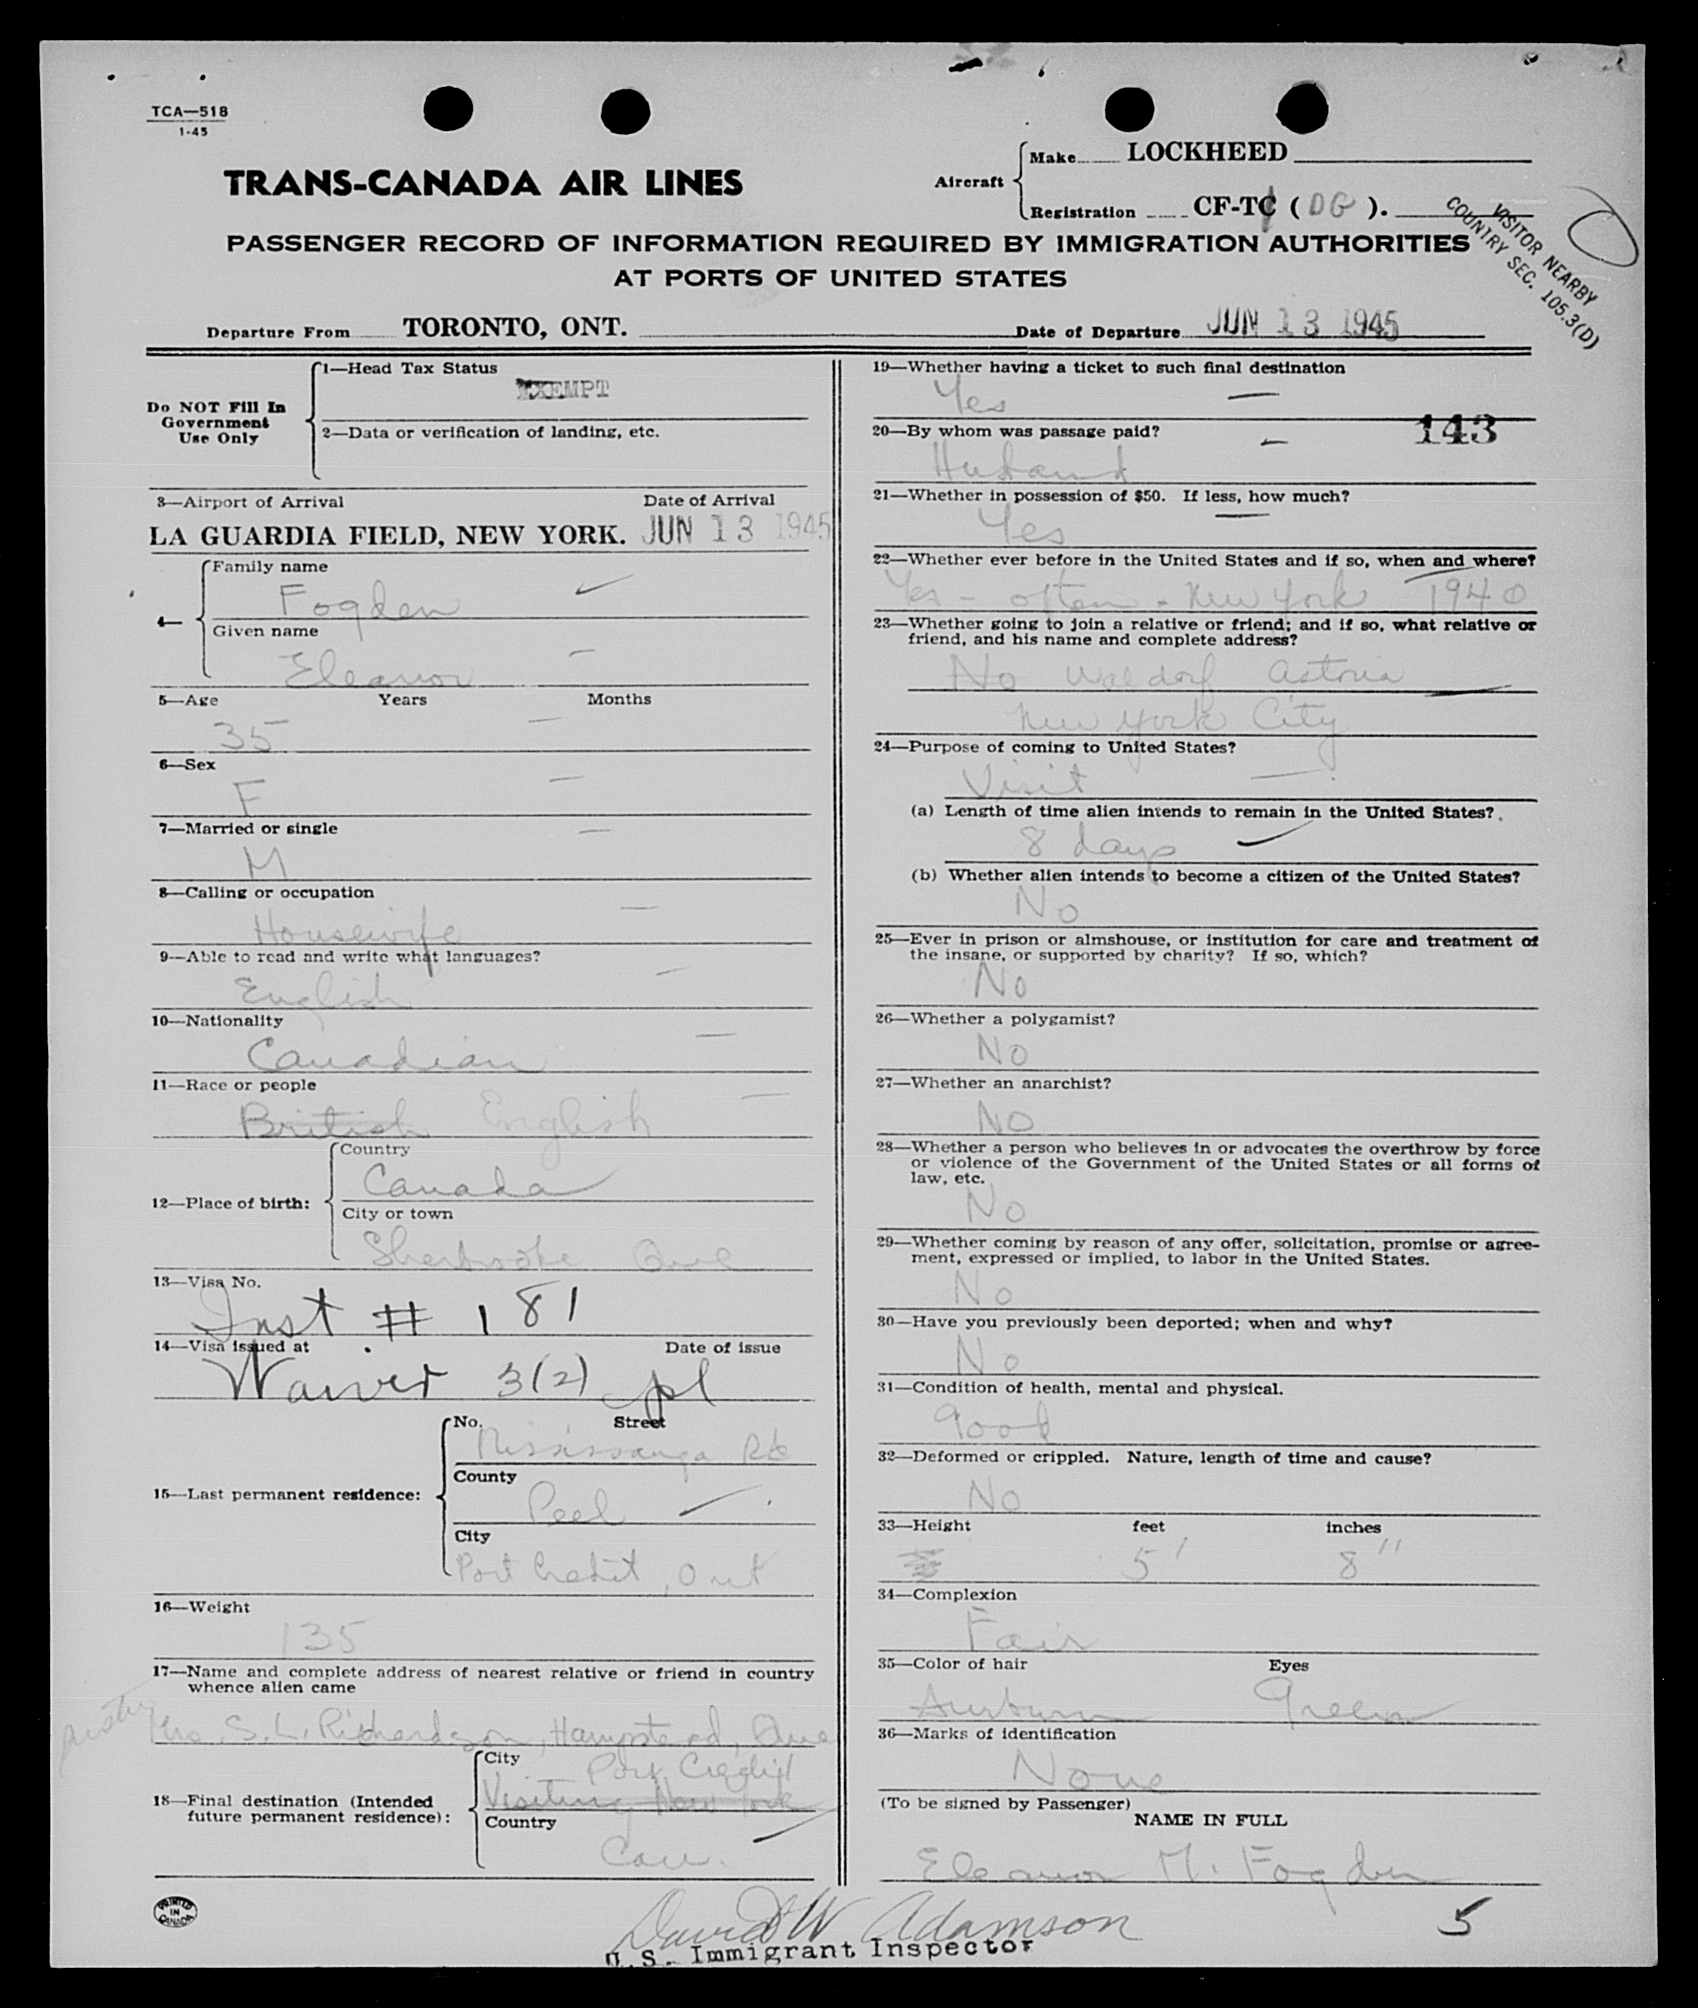 TCA—518
1-45
TRANS-CANADA AIR LINES
Aircraft
Make LOCKHEED
Registration CF-TC ( DG ).
VISITOR NEARBY
COUNTRY SEC. 105.3(D)
PASSENGER RECORD OF INFORMATION REQUIRED BY IMMIGRATION AUTHORITIES
AT PORTS OF UNITED STATES
Departure From TORONTO, ONT.
Date of Departure JUN 13 1945
Do NOT Fill In
Government
Use Only
1—Head Tax Status
EXEMPT
2—Data or verification of landing, etc.
3—Airport of Arrival Date of Arrival
LA GUARDIA FIELD, NEW YORK. JUN 13 1945
4—
Family name
Fogden
Given name
Eleanor
5—Age Years Months
35
6—Sex
F
7—Married or single
M
8—Calling or occupation
Housewife
9—Able to read and write what languages?
English
10—Nationality
Canadian
11—Race or people
British English
12—Place of birth:
Country
Canada
City or town
Sherbrooke Que
13—Visa No.
Inst # 181
14—Visa issued at Date of issue
Waiver 3(2)
15—Last permanent residence:
No. Street
Mississauga Rd
County
Peel
City
Port Credit, Ont
16—Weight
135
17—Name and complete address of nearest relative or friend in country
whence alien came
S. L. Richardson, Hampstead, Que
18—Final destination (Intended
future permanent residence):
City
Port Credit
Visiting New York
Country
Can.
PRINTED
IN
CANADA
19—Whether having a ticket to such final destination
Yes
143
20—By whom was passage paid?
Husband
21—Whether in possession of $50. If less, how much?
Yes
22—Whether ever before in the United States and if so, when and where?
Yes - often - New York 1940
23—Whether going to join a relative or friend; and if so, what relative or
friend, and his name and complete address?
No Waldorf Astoria
New York City
24—Purpose of coming to United States?
Visit
(a) Length of time alien intends to remain in the United States?
8 days
(b) Whether alien intends to become a citizen of the United States?
No
25—Ever in prison or almshouse, or institution for care and treatment of
the insane, or supported by charity? If so, which?
No
26—Whether a polygamist?
No
27—Whether an anarchist?
NO
28—Whether a person who believes in or advocates the overthrow by force
or violence of the Government of the United States or all forms of
law, etc.
No
29—Whether coming by reason of any offer, solicitation, promise or agree-
ment, expressed or implied, to labor in the United States.
No
30—Have you previously been deported; when and why?
No
31—Condition of health, mental and physical.
Good
32—Deformed or crippled. Nature, length of time and cause?
No
33—Height feet inches
5' 8"
34—Complexion
Fair
35—Color of hair Eyes
Auburn Green
36—Marks of identification
None
(To be signed by Passenger)
NAME IN FULL
Eleanor M. Fogden
5
David W Adamson
U.S. Immigrant Inspector